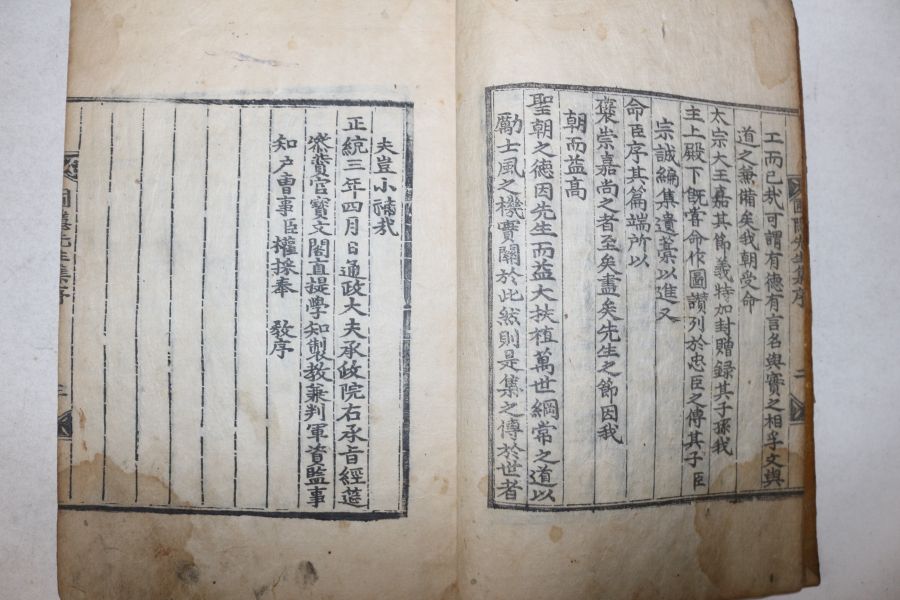 工而已哉可謂有德有言名與實之相孚文與
道之兼備矣我朝受命
太宗大王嘉其節義特加封贈錄其子孫我
主上殿下旣嘗命作圖讚列於忠臣之傳其子臣
宗誠編集遺藁以進又
命臣序其篇端所以
褒崇嘉尚之者至矣盡矣先生之節因我
朝而益高
聖朝之德因先生而益大扶植萬世綱常之道以
勵士風之機實關於此然則是集之傳於世者
夫豈小補哉
正統三年四月日通政大夫承政院右承旨經筵
叅贊官寶文閣直提學知製教兼判軍資監事
知户曹事臣權採奉 敎序
圃隱先生集序